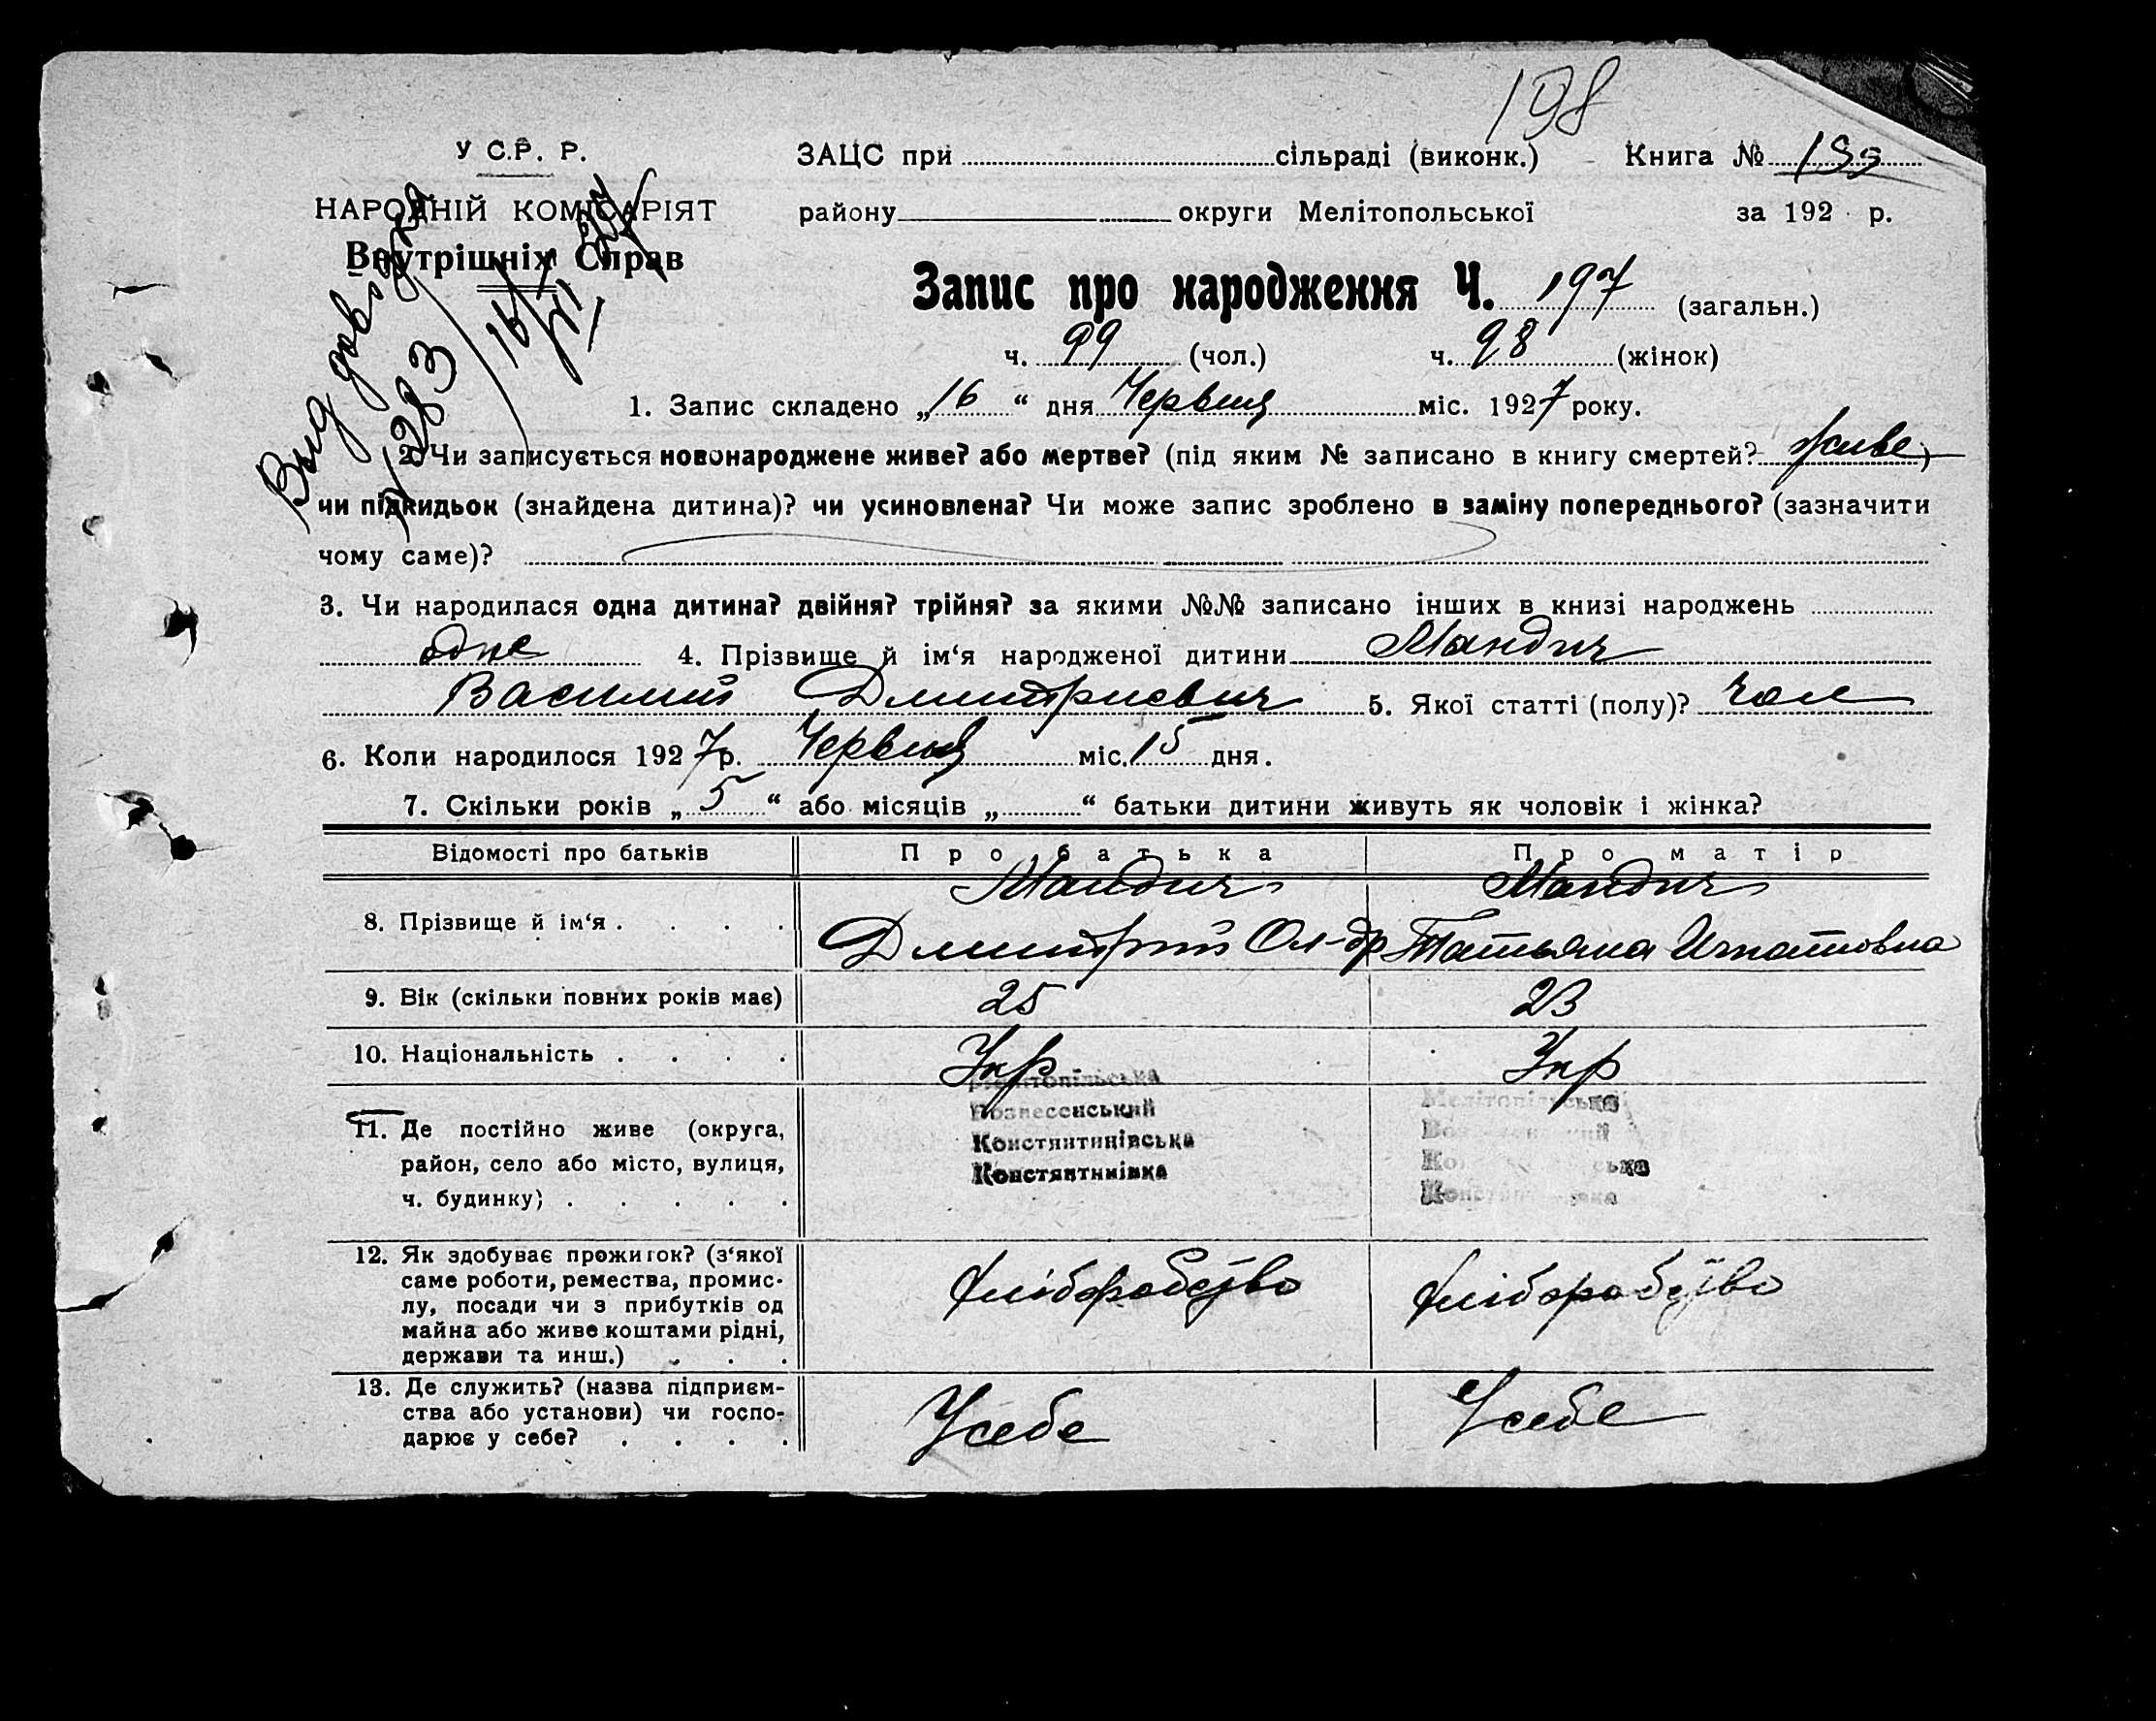 198
У С.Р. Р.
ЗАЦС при сільраді (виконк.) Книга №
НАРОДНІЙ КОМІСАРІЯТ
району округи Мелітопольської за 192 р.
Внутрішніх Справ
Запис про народження Ч. 197 (загальн.)
ч. 99 (чол.) ч. 98 (жінок)
1. Запис складено „16“ дня Червця міс. 1927 року.
2. Чи записується новонароджене живе? або мертве? (під яким № записано в книгу смертей? живе)
чи підкидьок (знайдена дитина)? чи усиновлена? Чи може запис зроблено в заміну попереднього? (зазначити
чому саме)?
3. Чи народилася одна дитина? двійня? трійня? за якими №№ записано інших в книзі народжень
одне 4. Прізвище й ім‘я народженої дитини Мандич
Василий Дмитриевич 5. Якої статті (полу)? чол
6. Коли народилося 1927 р. Червця міс. 15 дня.
7. Скільки років „5“ або місяців „ “ батьки дитини живуть як чоловік і жінка?
Відомості про батьків Про батька Про матір
Мандич Мандич
8. Прізвище й ім‘я . . . . Дмитрий Ол-др Татьяна Игнатовна
9. Вік (скільки повних років має) 25 23
10. Національність . . . . Укр Укр
Мелітопільська Мелітопільська
Вознесенський
11. Де постійно живе (округа,
Констянтинівська
район, село або місто, вулиця,
Констянтинівка
ч. будинку) . . . . .
12. Як здобуває прожиток? (з‘якої
саме роботи, ремества, промис-
лу, посади чи з прибутків од
майна або живе коштами рідні,
держави та инш.) . . .
хліборобство хліборобство
13. Де служить? (назва підприєм-
ства або установи) чи госпо-
дарює у себе? . . . .
Усебе Усебе
Выд
№ 283